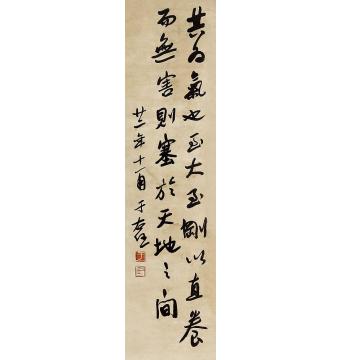 其为氣也至大至剛以直養
而無害則塞於天地之間
廿二年十一月 于右任